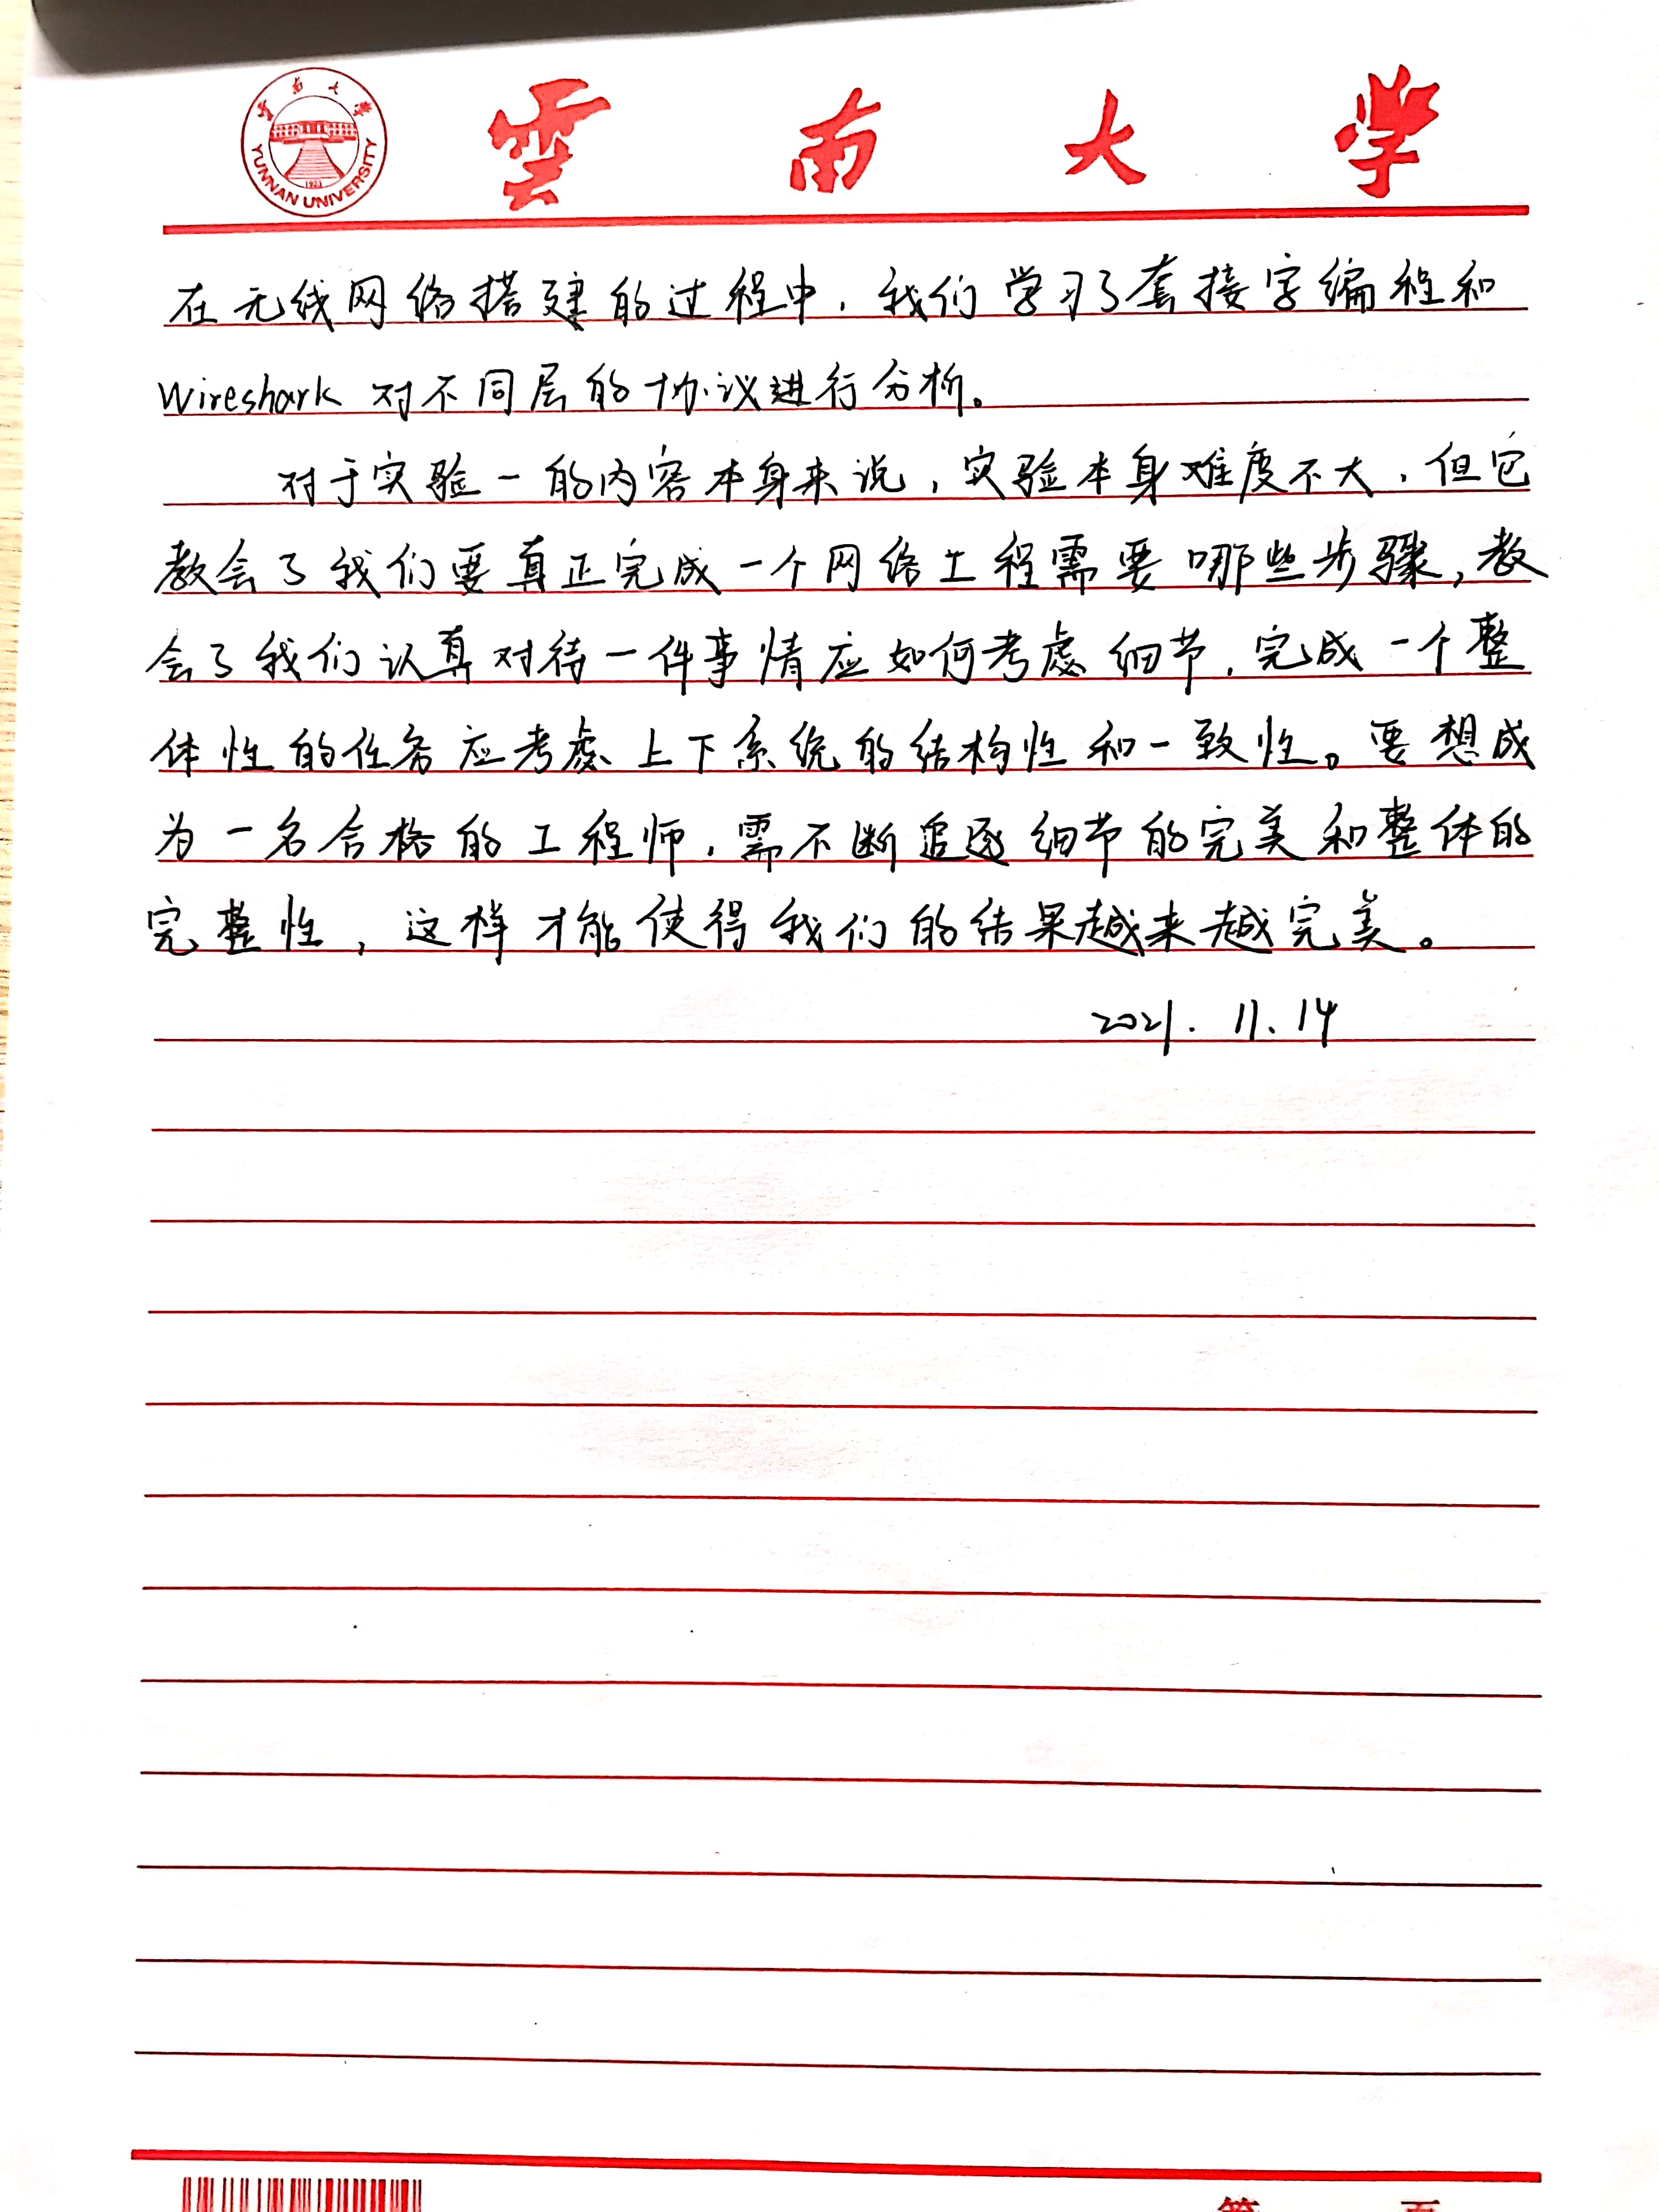 雲南大学
云南大学
YUNNAN UNIVERSITY
1923
在无线网络搭建的过程中，我们学习了套接字编程和
Wireshark 对不同层的协议进行分析。
对于实验一的内容本身来说，实验本身难度不大，但它
教会了我们要真正完成一个网络工程需要哪些步骤，教
会了我们认真对待一件事情应如何考虑细节，完成一个整
体性的任务应考虑上下系统的结构性和一致性。要想成
为一名合格的工程师，需不断追逐细节的完美和整体的
完整性，这样才能使得我们的结果越来越完美。
2021. 11. 14
第 页